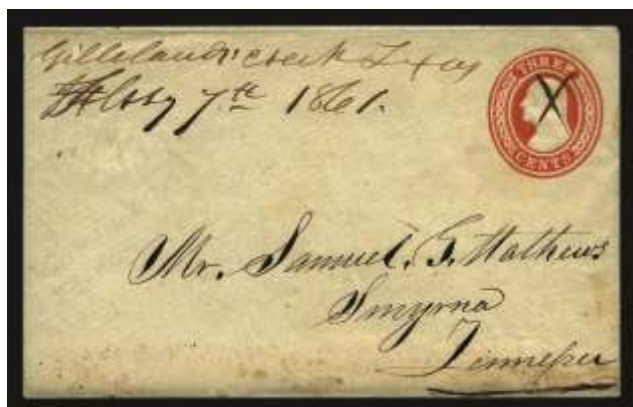 Gilleland creek Texas
7th 1861.
THREE
CENTS
X
Mr. Samuel. G. Mathews
Smyrna
Tennessee